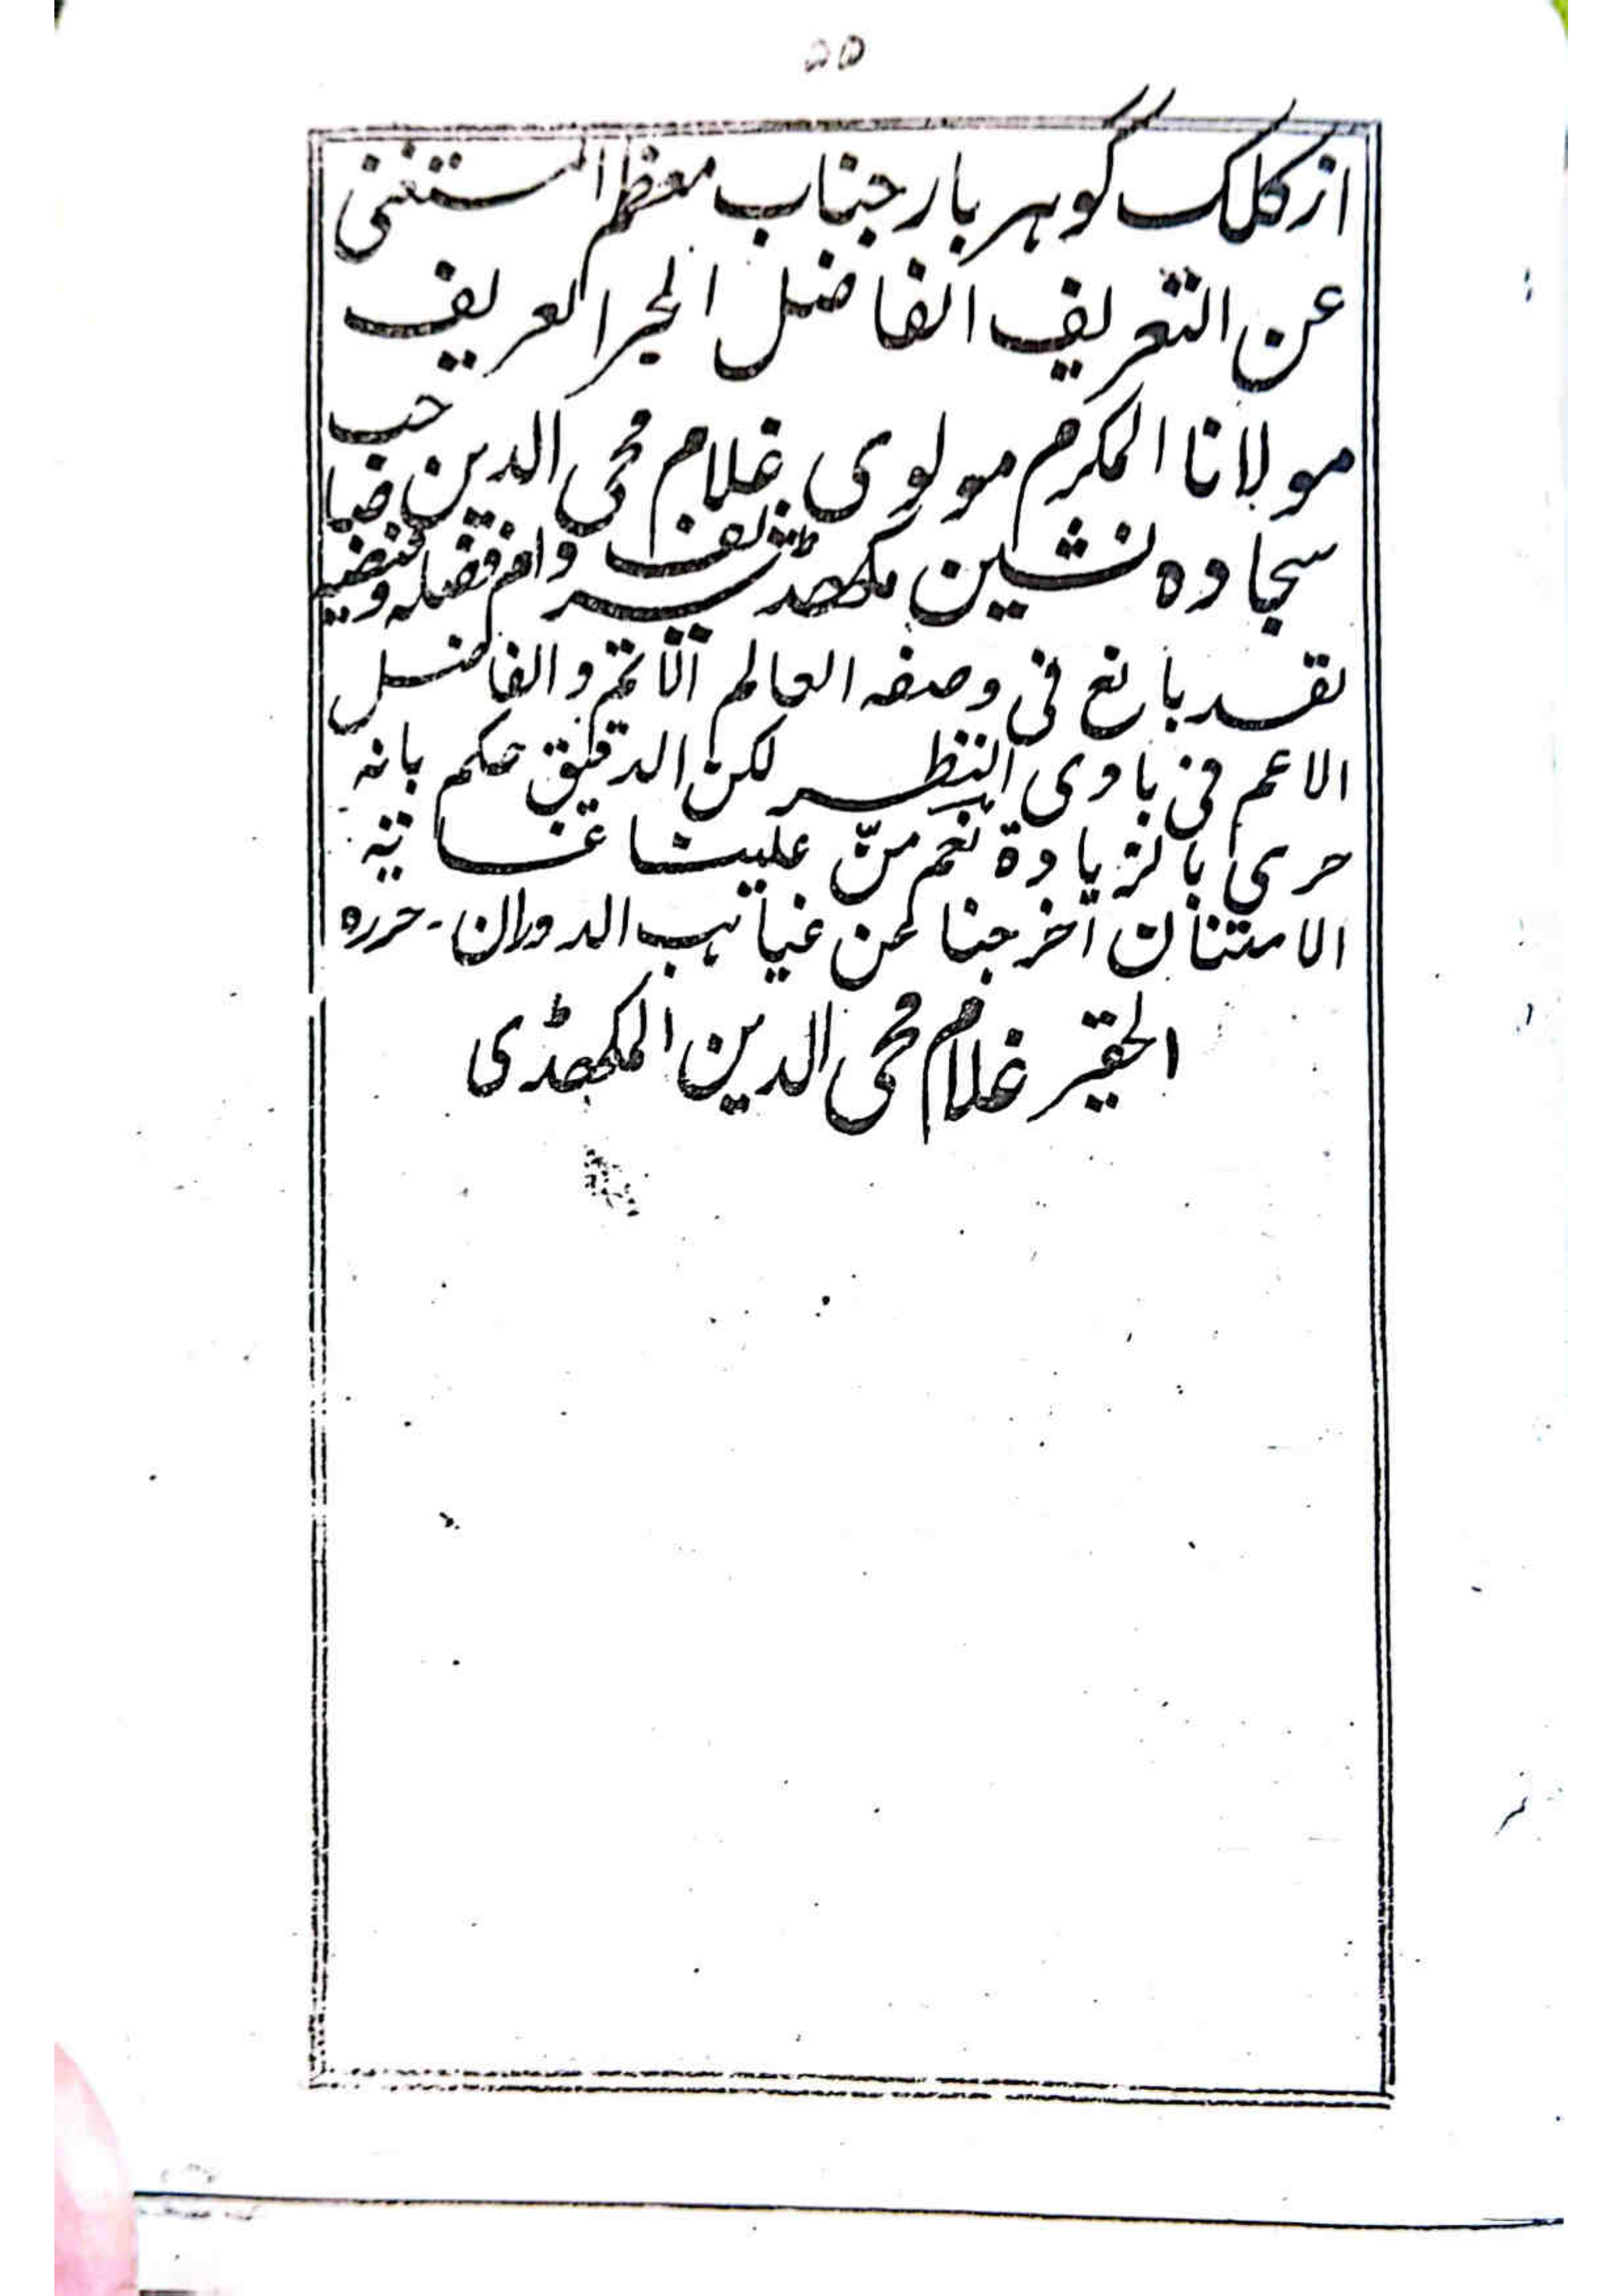 ۵۵
از کلک گوہر بار جناب معظم المستغنی
عن التعریف الفاضل الحبر العریف
مولانا المکرم مولوی غلام محی الدین صاحب
سجادہ نشین مکھڈ شریف دام فضلہ وفیضہ
لقد بالغ فی وصفہ العالم الاتم والفاضل
الاعم فی بادی النظر لکن الدقیق حکم بانہ
حری بالزیادة نعم منّ علینا غایة
الامتنان اخرجنا من غیاہب الدوران۔ حررہ
الحقیر غلام محی الدین المکھڈی